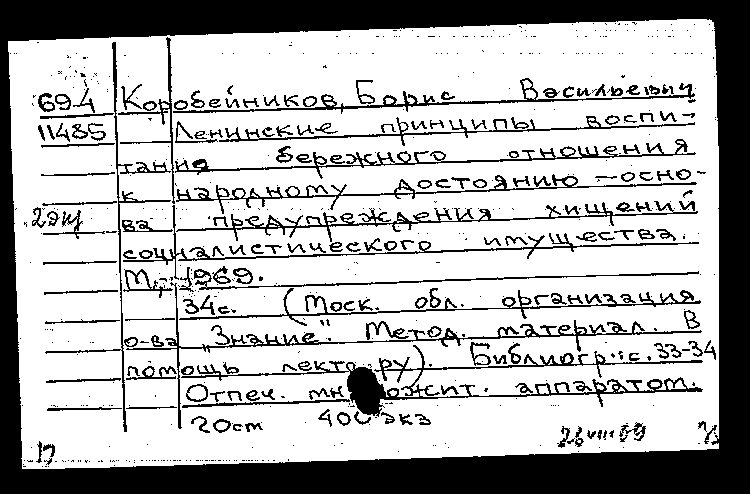 694 Коробейников, Борис Васильевич
11485 Ленинские принципы воспи-
тания бережного отношения
к народному достоянию - осно-
2 экз ва предупреждения хищений
социалистического имущества.
М., 1969.
34с. (Моск. обл. организация
о-ва "Знание". Метод. материал. В
помощь лектору). Библиогр.: с. 33-34
Отпеч. множит. аппаратом.
20см 400 экз
26 VIII 69